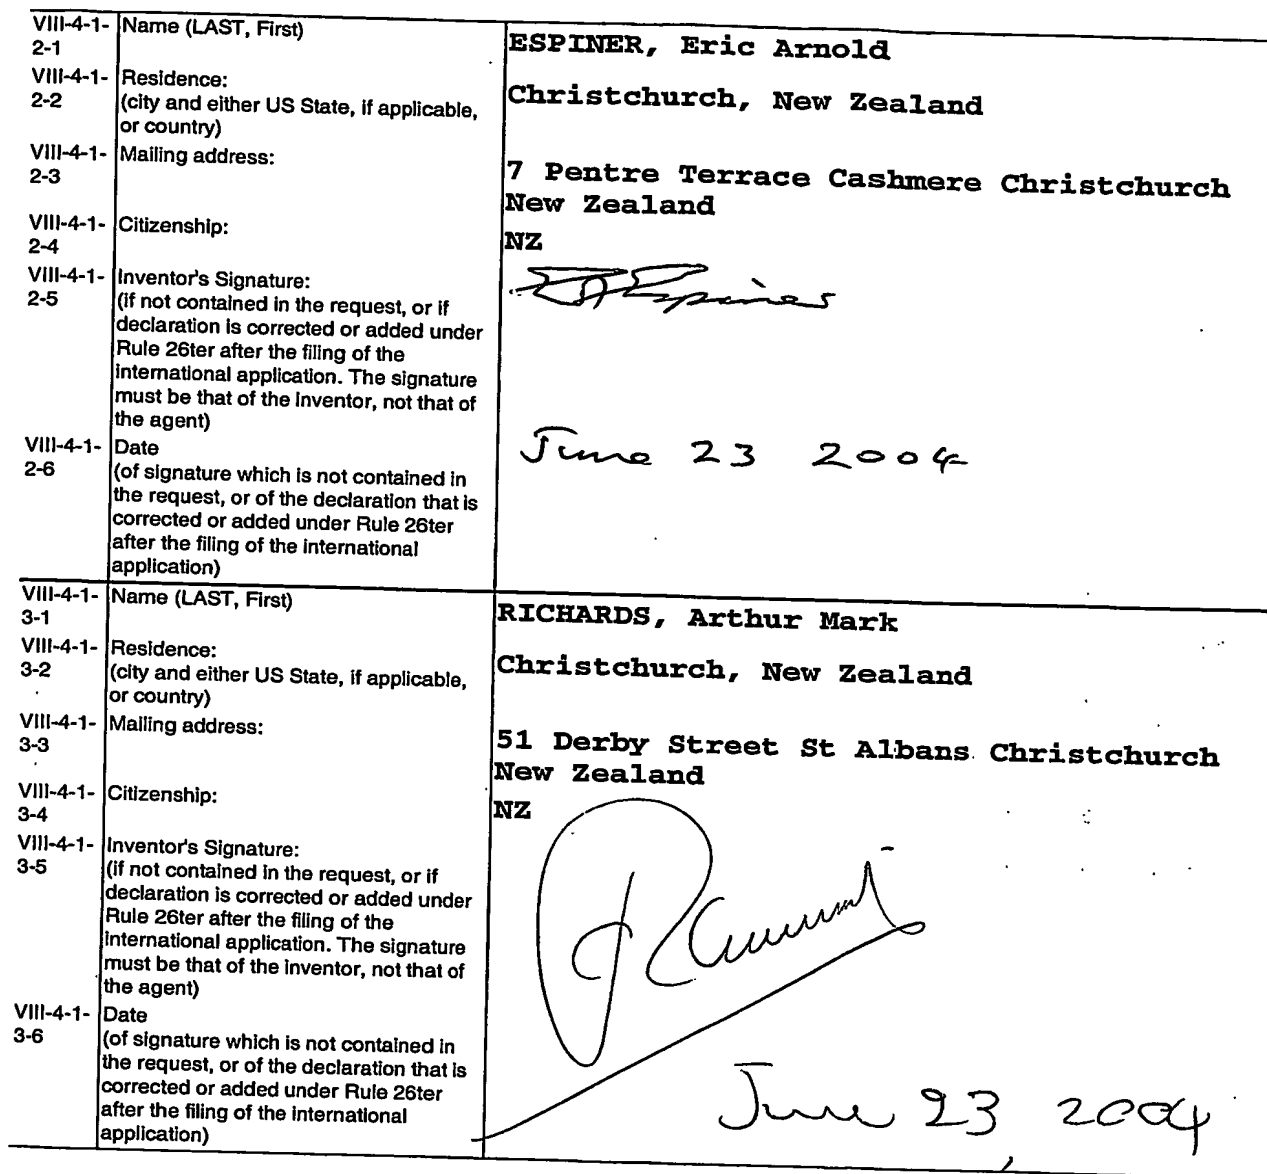 VIII-4-1-2-1 Name (LAST, First) ESPINER, Eric Arnold
VIII-4-1-2-2 Residence:
(city and either US State, if applicable,
or country)
Christchurch, New Zealand
VIII-4-1-2-3 Mailing address:
7 Pentre Terrace Cashmere Christchurch
New Zealand
VIII-4-1-2-4 Citizenship:
NZ
VIII-4-1-2-5 Inventor's Signature:
(if not contained in the request, or if
declaration is corrected or added under
Rule 26ter after the filing of the
international application. The signature
must be that of the inventor, not that of
the agent)
EA Espiner
VIII-4-1-2-6 Date
(of signature which is not contained in
the request, or of the declaration that is
corrected or added under Rule 26ter
after the filing of the international
application)
June 23 2004
VIII-4-1-3-1 Name (LAST, First) RICHARDS, Arthur Mark
VIII-4-1-3-2 Residence:
(city and either US State, if applicable,
or country)
Christchurch, New Zealand
VIII-4-1-3-3 Mailing address:
51 Derby Street St Albans Christchurch
New Zealand
VIII-4-1-3-4 Citizenship:
NZ
VIII-4-1-3-5 Inventor's Signature:
(if not contained in the request, or if
declaration is corrected or added under
Rule 26ter after the filing of the
international application. The signature
must be that of the inventor, not that of
the agent)
VIII-4-1-3-6 Date
(of signature which is not contained in
the request, or of the declaration that is
corrected or added under Rule 26ter
after the filing of the international
application)
June 23, 2004